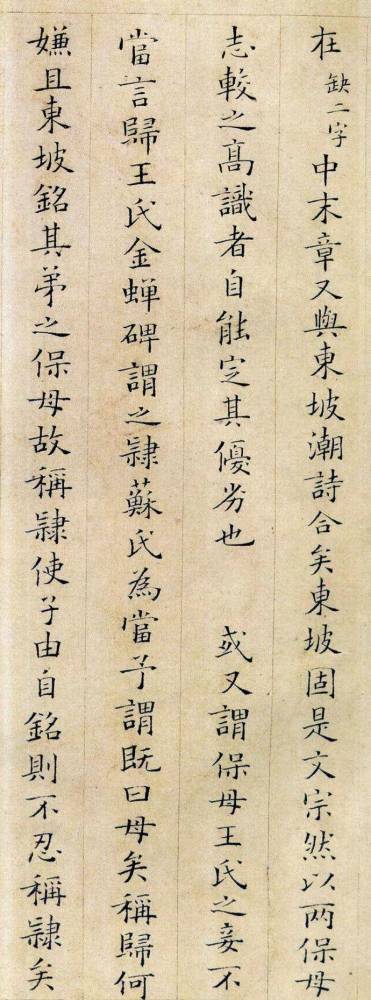 在缺二字中末章又與東坡潮詩合矣東坡固是文宗然以兩保母
志較之髙識者自能定其優劣也 或又謂保母王氏之妾不
當言歸王氏金蝉碑謂之隸蘇氏為當予謂既曰母矣稱歸何
嫌且東坡銘其弟之保母故稱隸使子由自銘則不忍稱隸矣